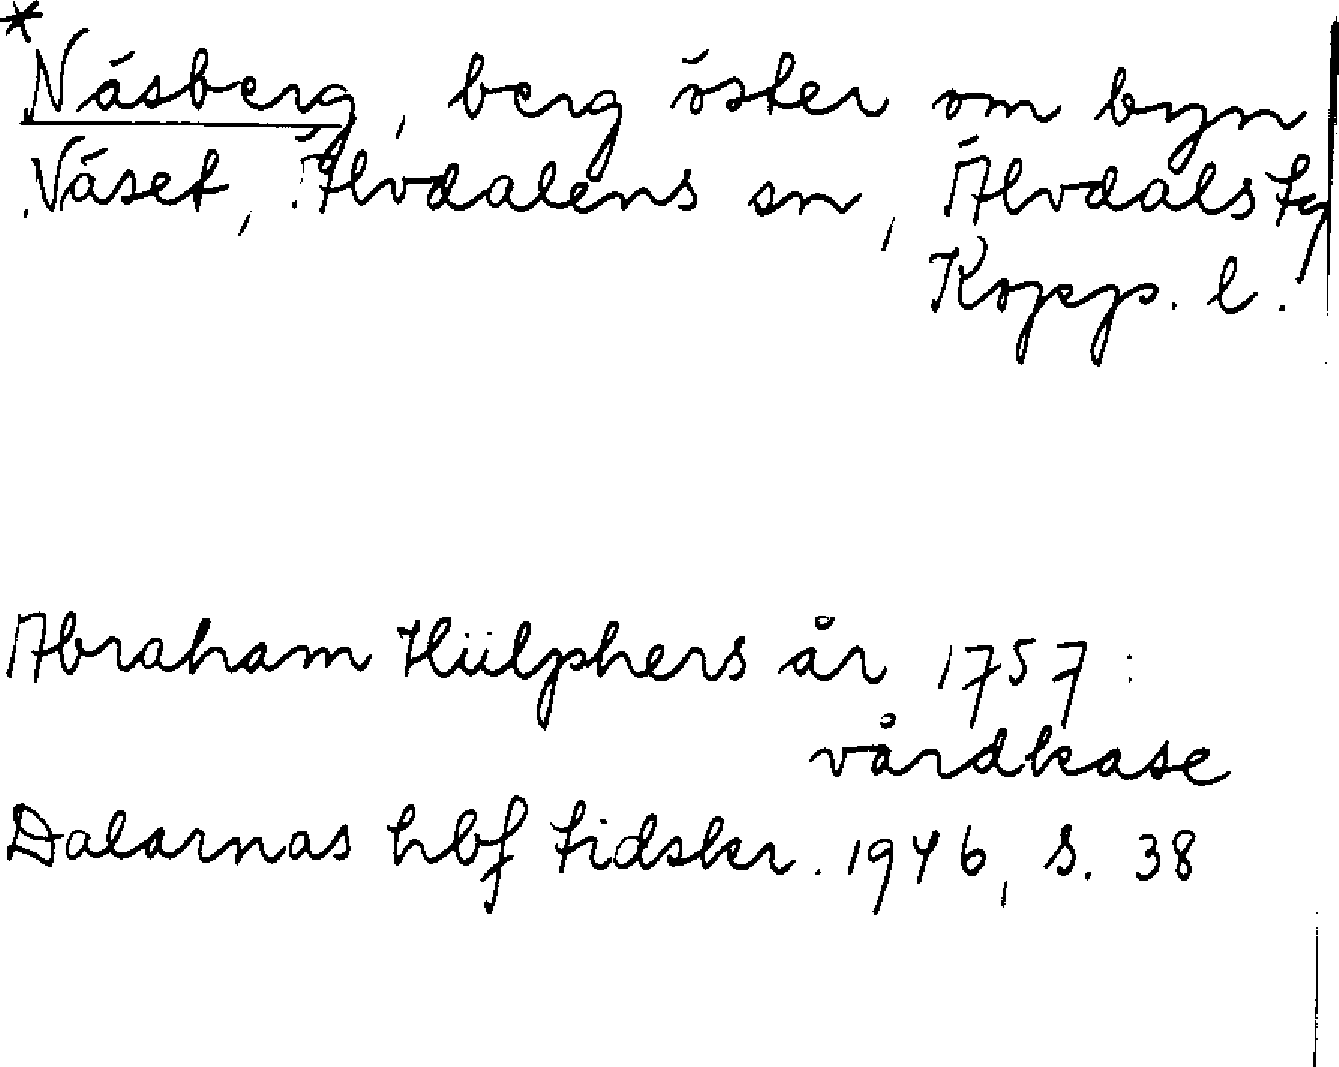 *
Näsberg, berg öster om byn
Näset, Älvdalens sn, Älvdals tg
Kopp. l.
Abraham Hülphers år 1757:
vårdkase
Dalarnas hbf tidskr. 1946, s. 38